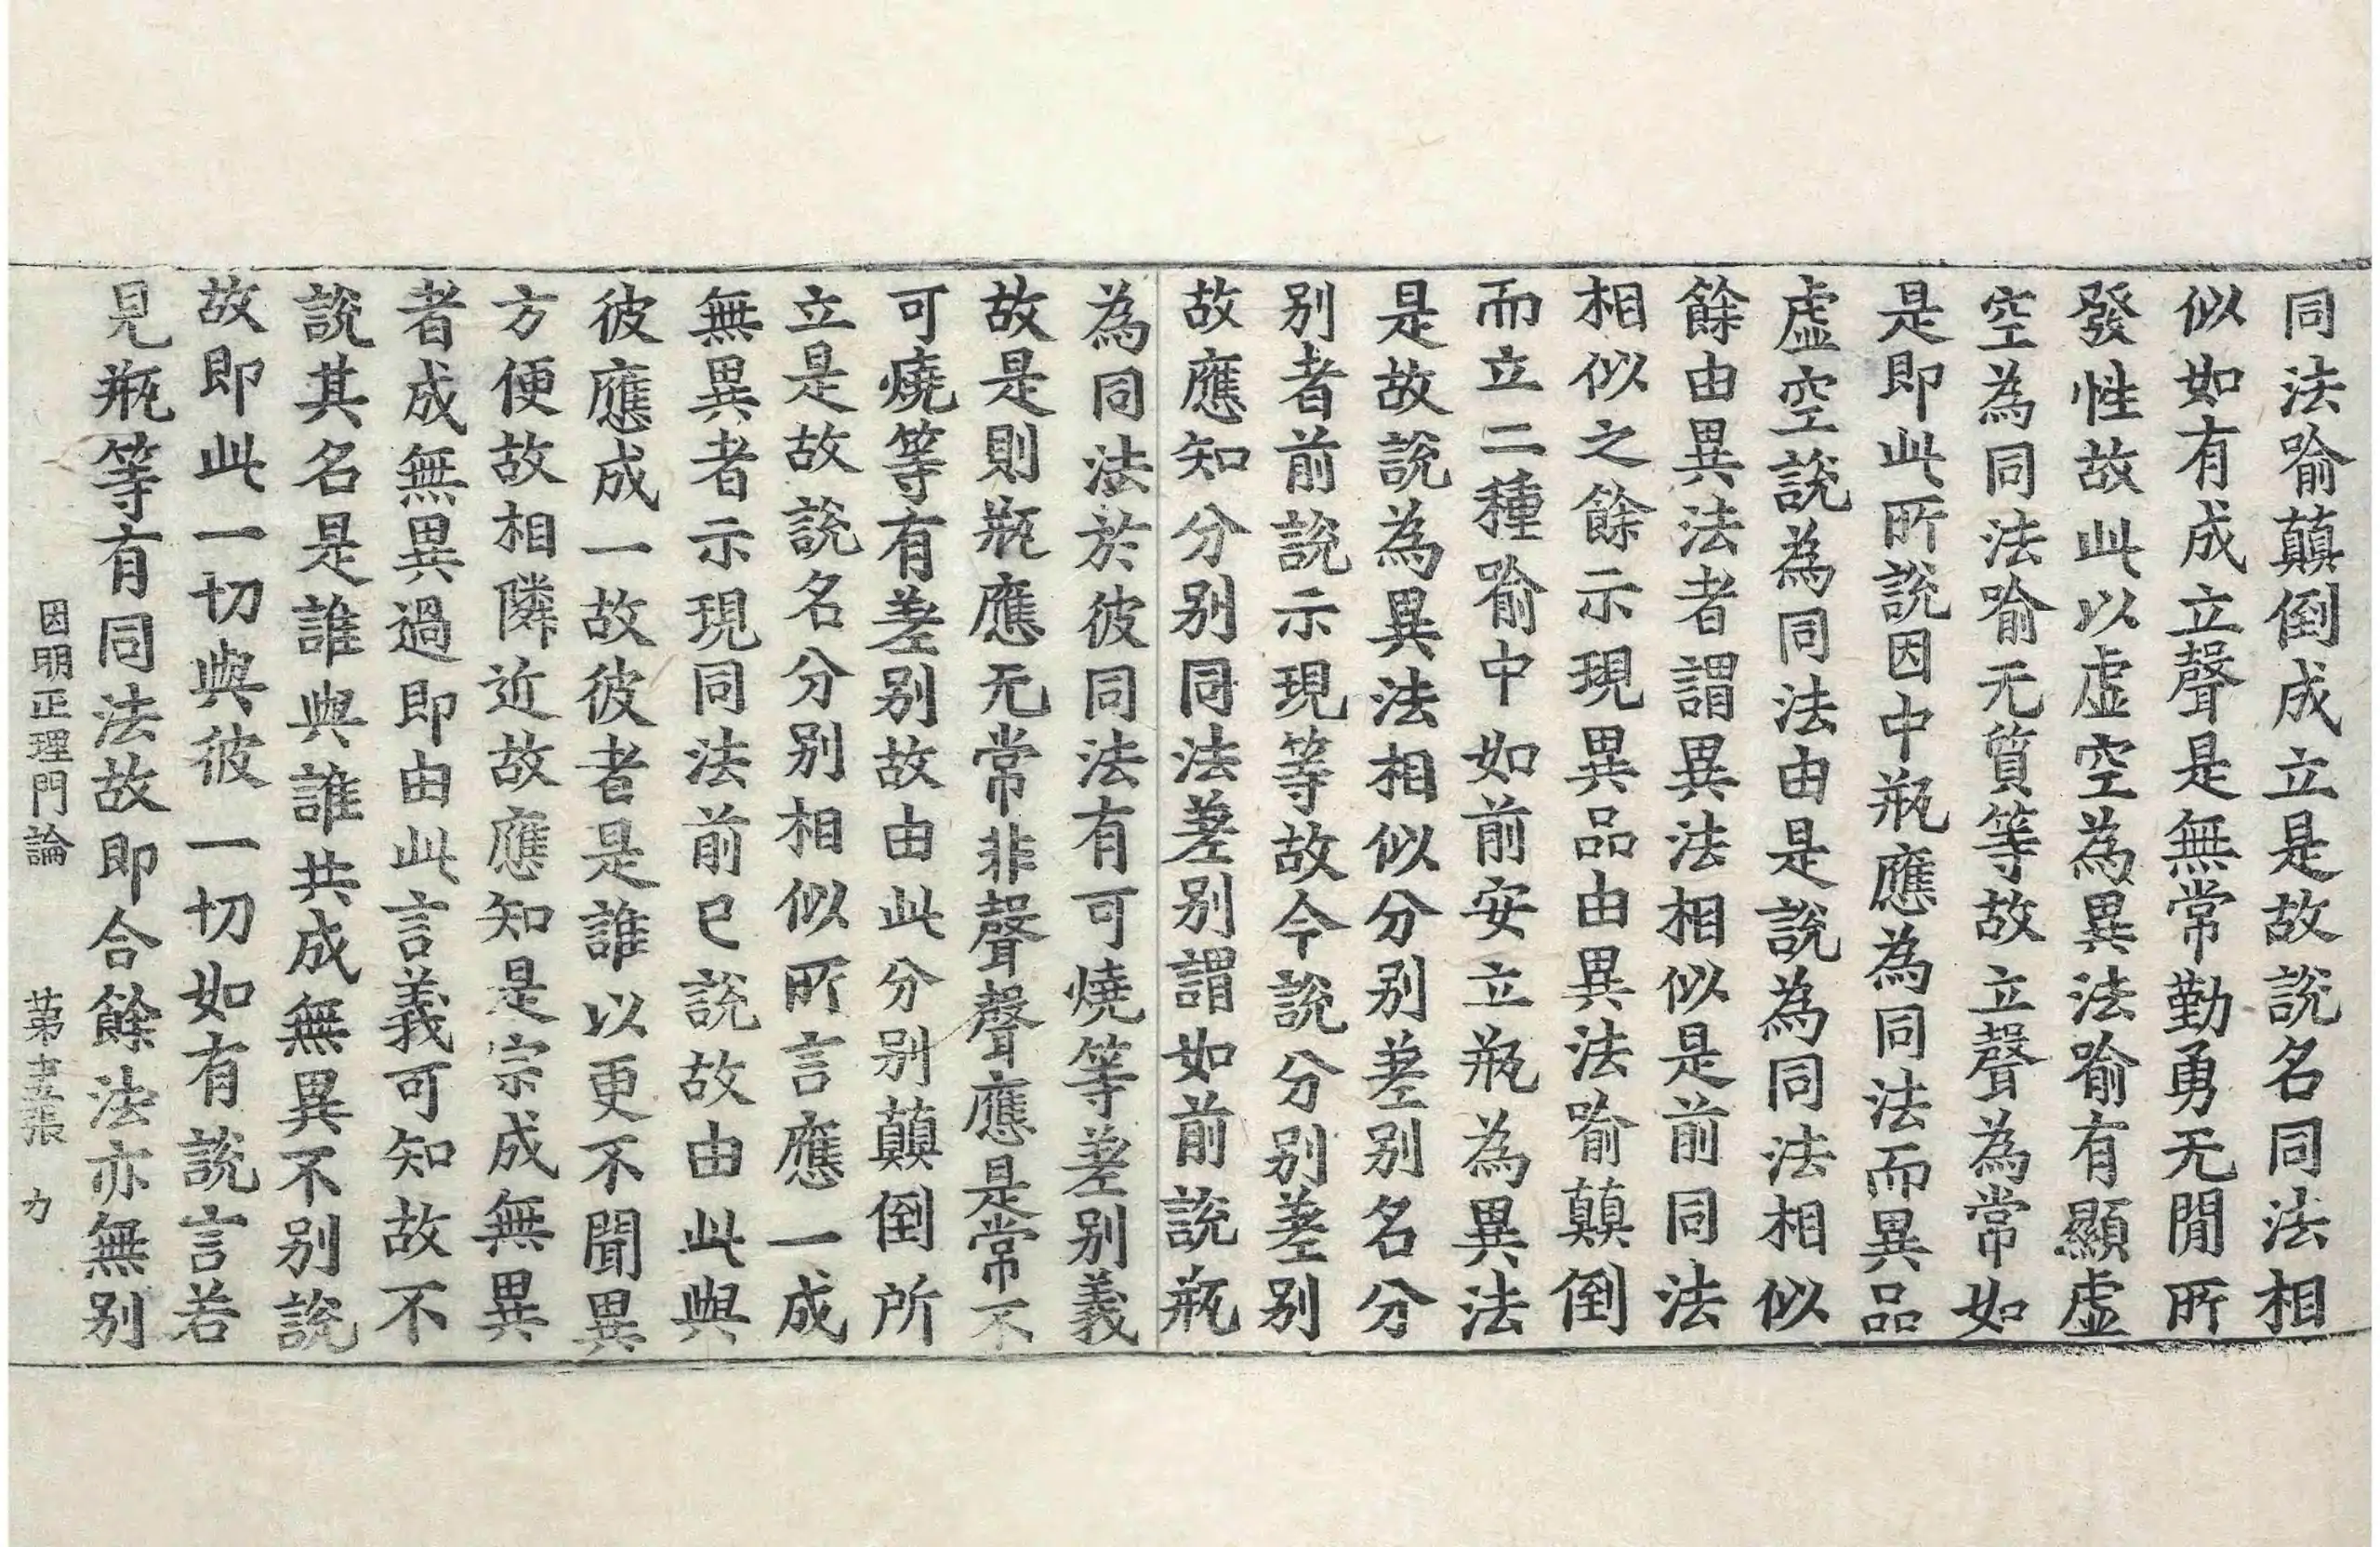 同法喻顛倒成立是故說名同法相
似如有成立聲是無常勤勇无閒所
發性故此以虛空為異法喻有顯虛
空為同法喻无質等故立聲為常如
是即此所說因中瓶應為同法而異品
虛空說為同法由是說為同法相似
餘由異法者謂異法相似是前同法
相似之餘示現異品由異法喻顛倒
而立二種喻中如前安立瓶為異法
是故說為異法相似分別差別名分
別者前說示現等故今說分別差別
故應知分別同法差別謂如前說瓶
為同法於彼同法有可燒等差別義
故是則瓶應无常非聲聲應是常不
可燒等有差別故由此分別顛倒所
立是故說名分別相似所言應一成
無異者示現同法前已說故由此與
彼應成一故彼者是誰以更不聞異
方便故相隣近故應知是宗成無異
者成無異過即由此言義可知故不
說其名是誰與誰共成無異不別說
故即此一切與彼一切如有說言若
見瓶等有同法故即合餘法亦無別
因明正理門論 第 張 力